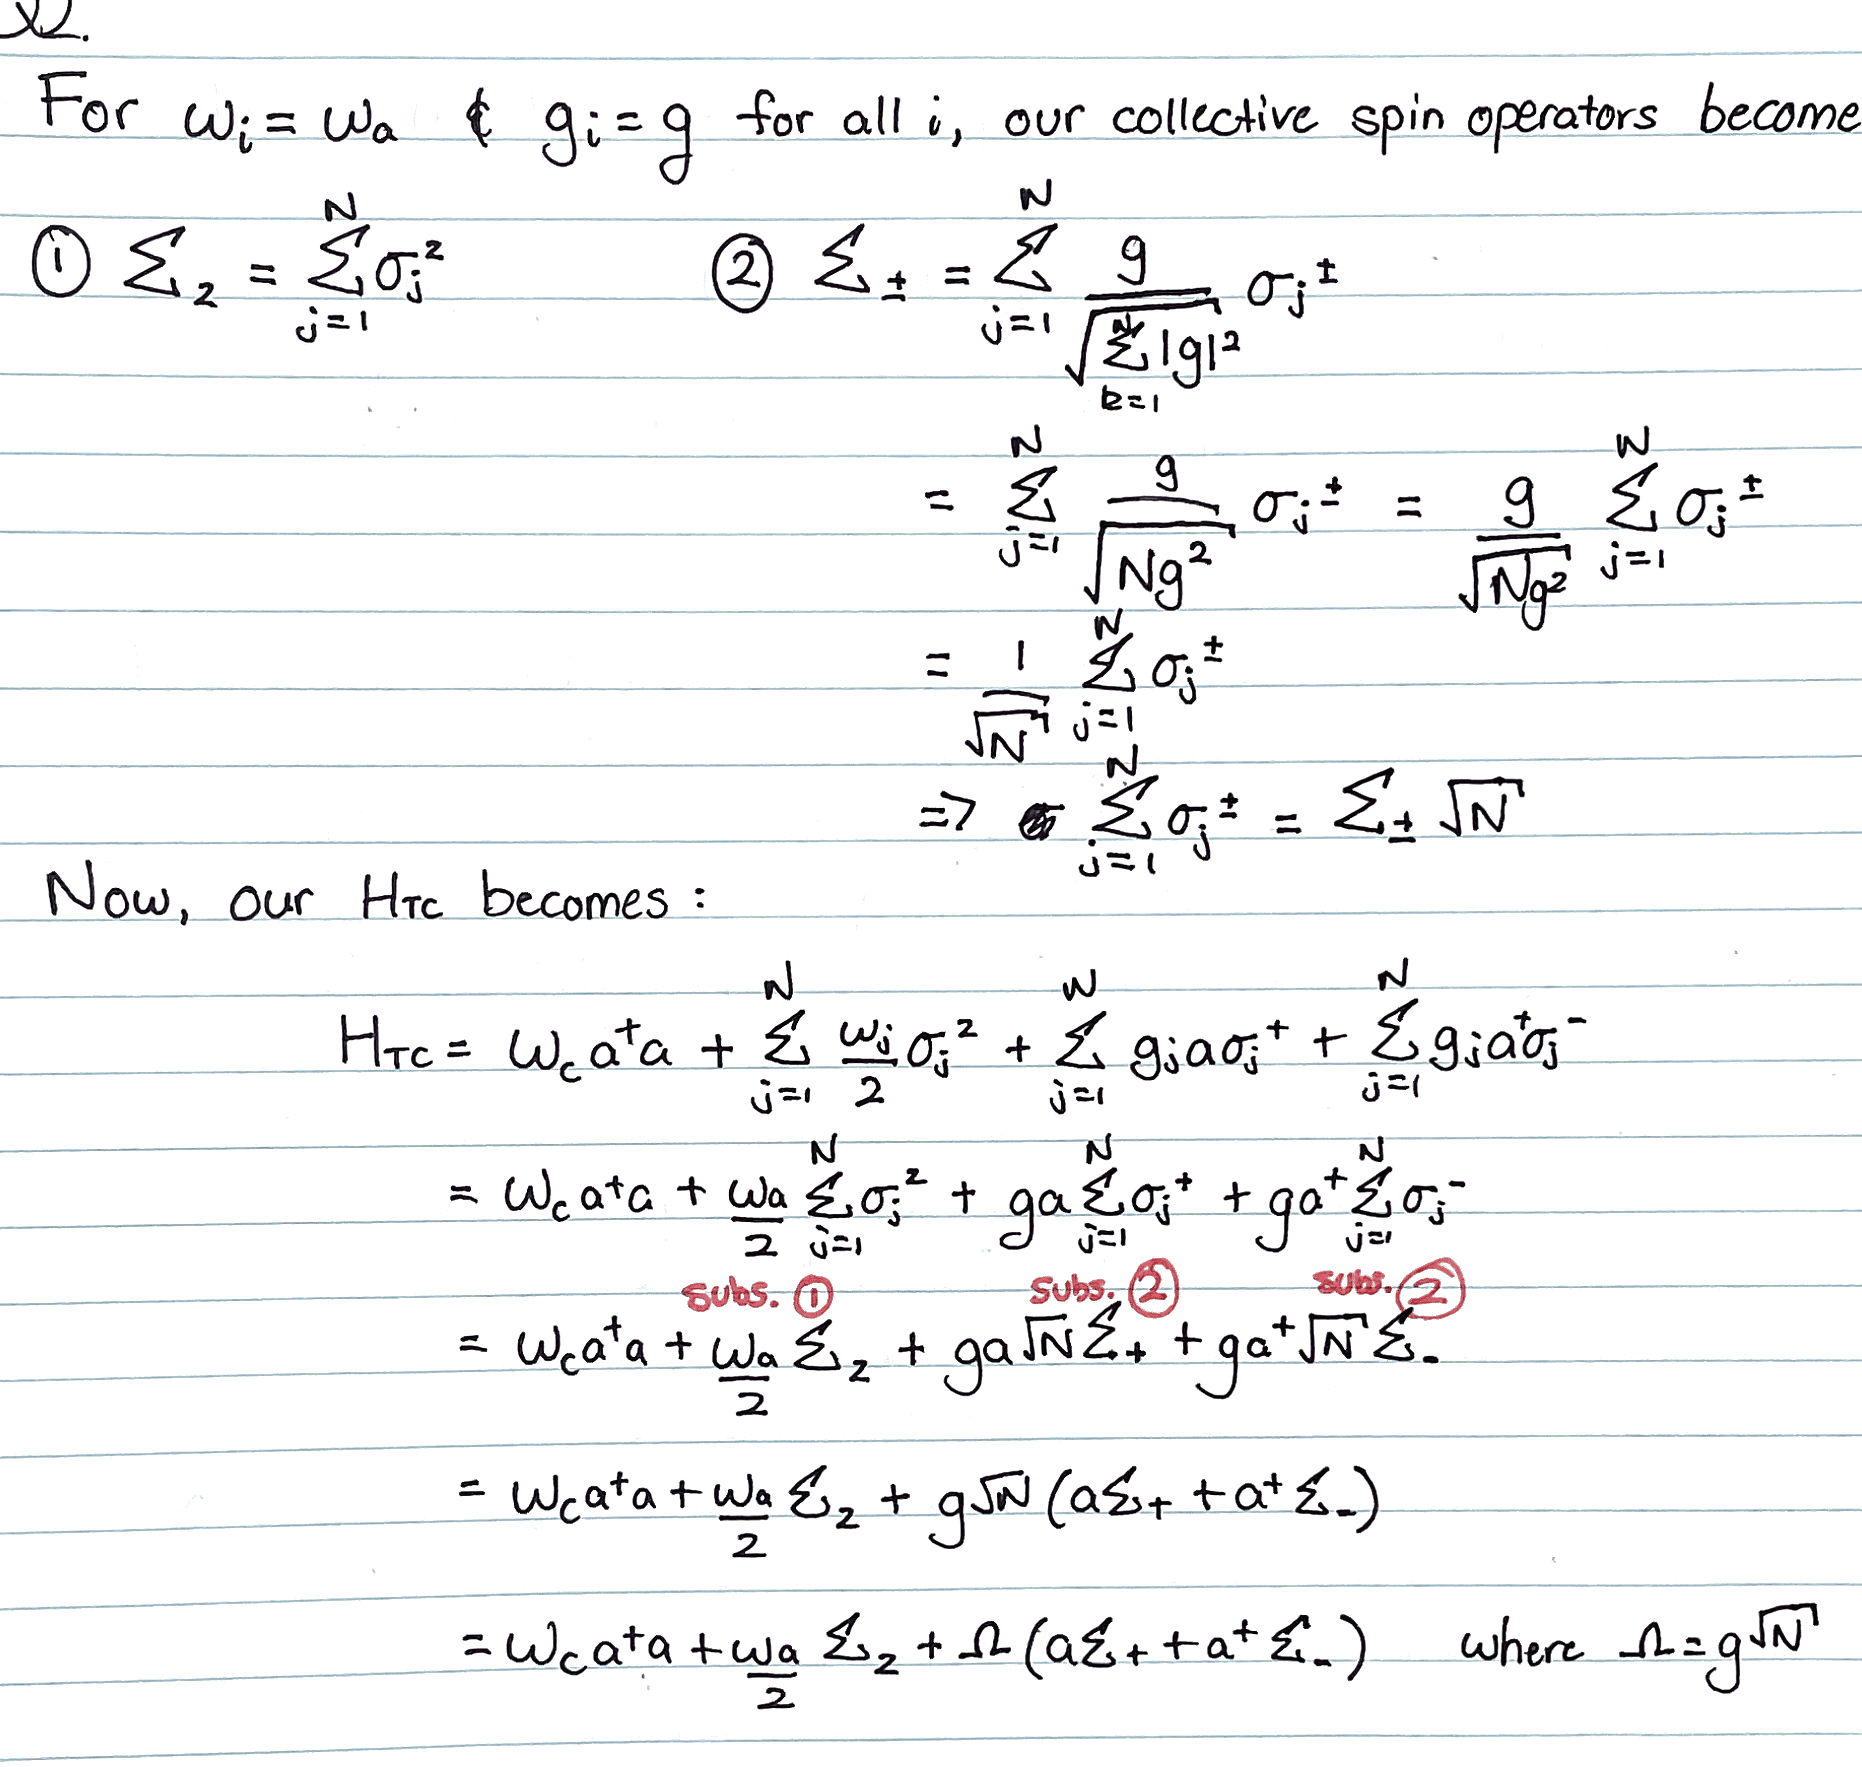 For ωᵢ = ωₐ & gᵢ = g for all i, our collective spin operators become
① Σ_z = Σ_{j=1}^{N} σⱼᶻ ② Σ_± = Σ_{j=1}^{N} g/√(Σ_{k=1}^{N} |g|²) σⱼ^±
= Σ_{j=1}^{N} g/√(Ng²) σⱼ^± = g/√(Ng²) Σ_{j=1}^{N} σⱼ^±
= 1/√N Σ_{j=1}^{N} σⱼ^±
=> Σ_{j=1}^{N} σⱼ^± = Σ_± √N
Now, our H_TC becomes :
H_TC = ω_c a†a + Σ_{j=1}^{N} ωⱼ/2 σⱼᶻ + Σ_{j=1}^{N} gⱼaσⱼ⁺ + Σ_{j=1}^{N} gⱼa†σⱼ⁻
= ω_c a†a + ωₐ/2 Σ_{j=1}^{N} σⱼᶻ + ga Σ_{j=1}^{N} σⱼ⁺ + ga† Σ_{j=1}^{N} σⱼ⁻
subs. ① subs. ② subs. ②
= ω_c a†a + ωₐ/2 Σ_z + ga√N Σ₊ + ga†√N Σ₋
= ω_c a†a + ωₐ/2 Σ_z + g√N (aΣ₊ + a†Σ₋)
= ω_c a†a + ωₐ/2 Σ_z + Ω (aΣ₊ + a†Σ₋) where Ω = g√N